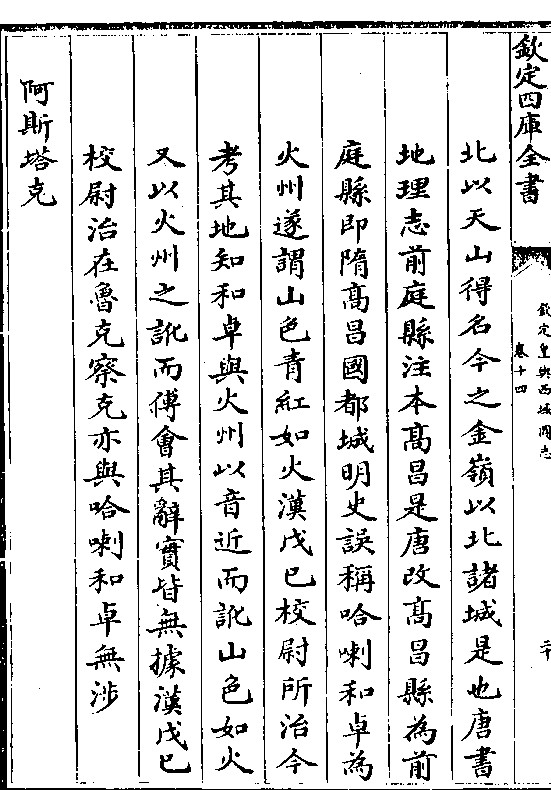 欽定四庫全書
欽定皇輿西域圖志
卷十四
二十
北以天山得名今之金嶺以北諸城是也唐書
地理志前庭縣注本高昌是唐改高昌縣為前
庭縣即隋高昌國都城明史誤稱哈喇和卓為
火州遂謂山色青紅如火漢戊已校尉所治今
考其地知和卓與火州以音近而訛山色如火
又以火州之訛而傅會其辭實皆無據漢戊已
校尉治在魯克察克亦與哈喇和卓無涉
阿斯塔克